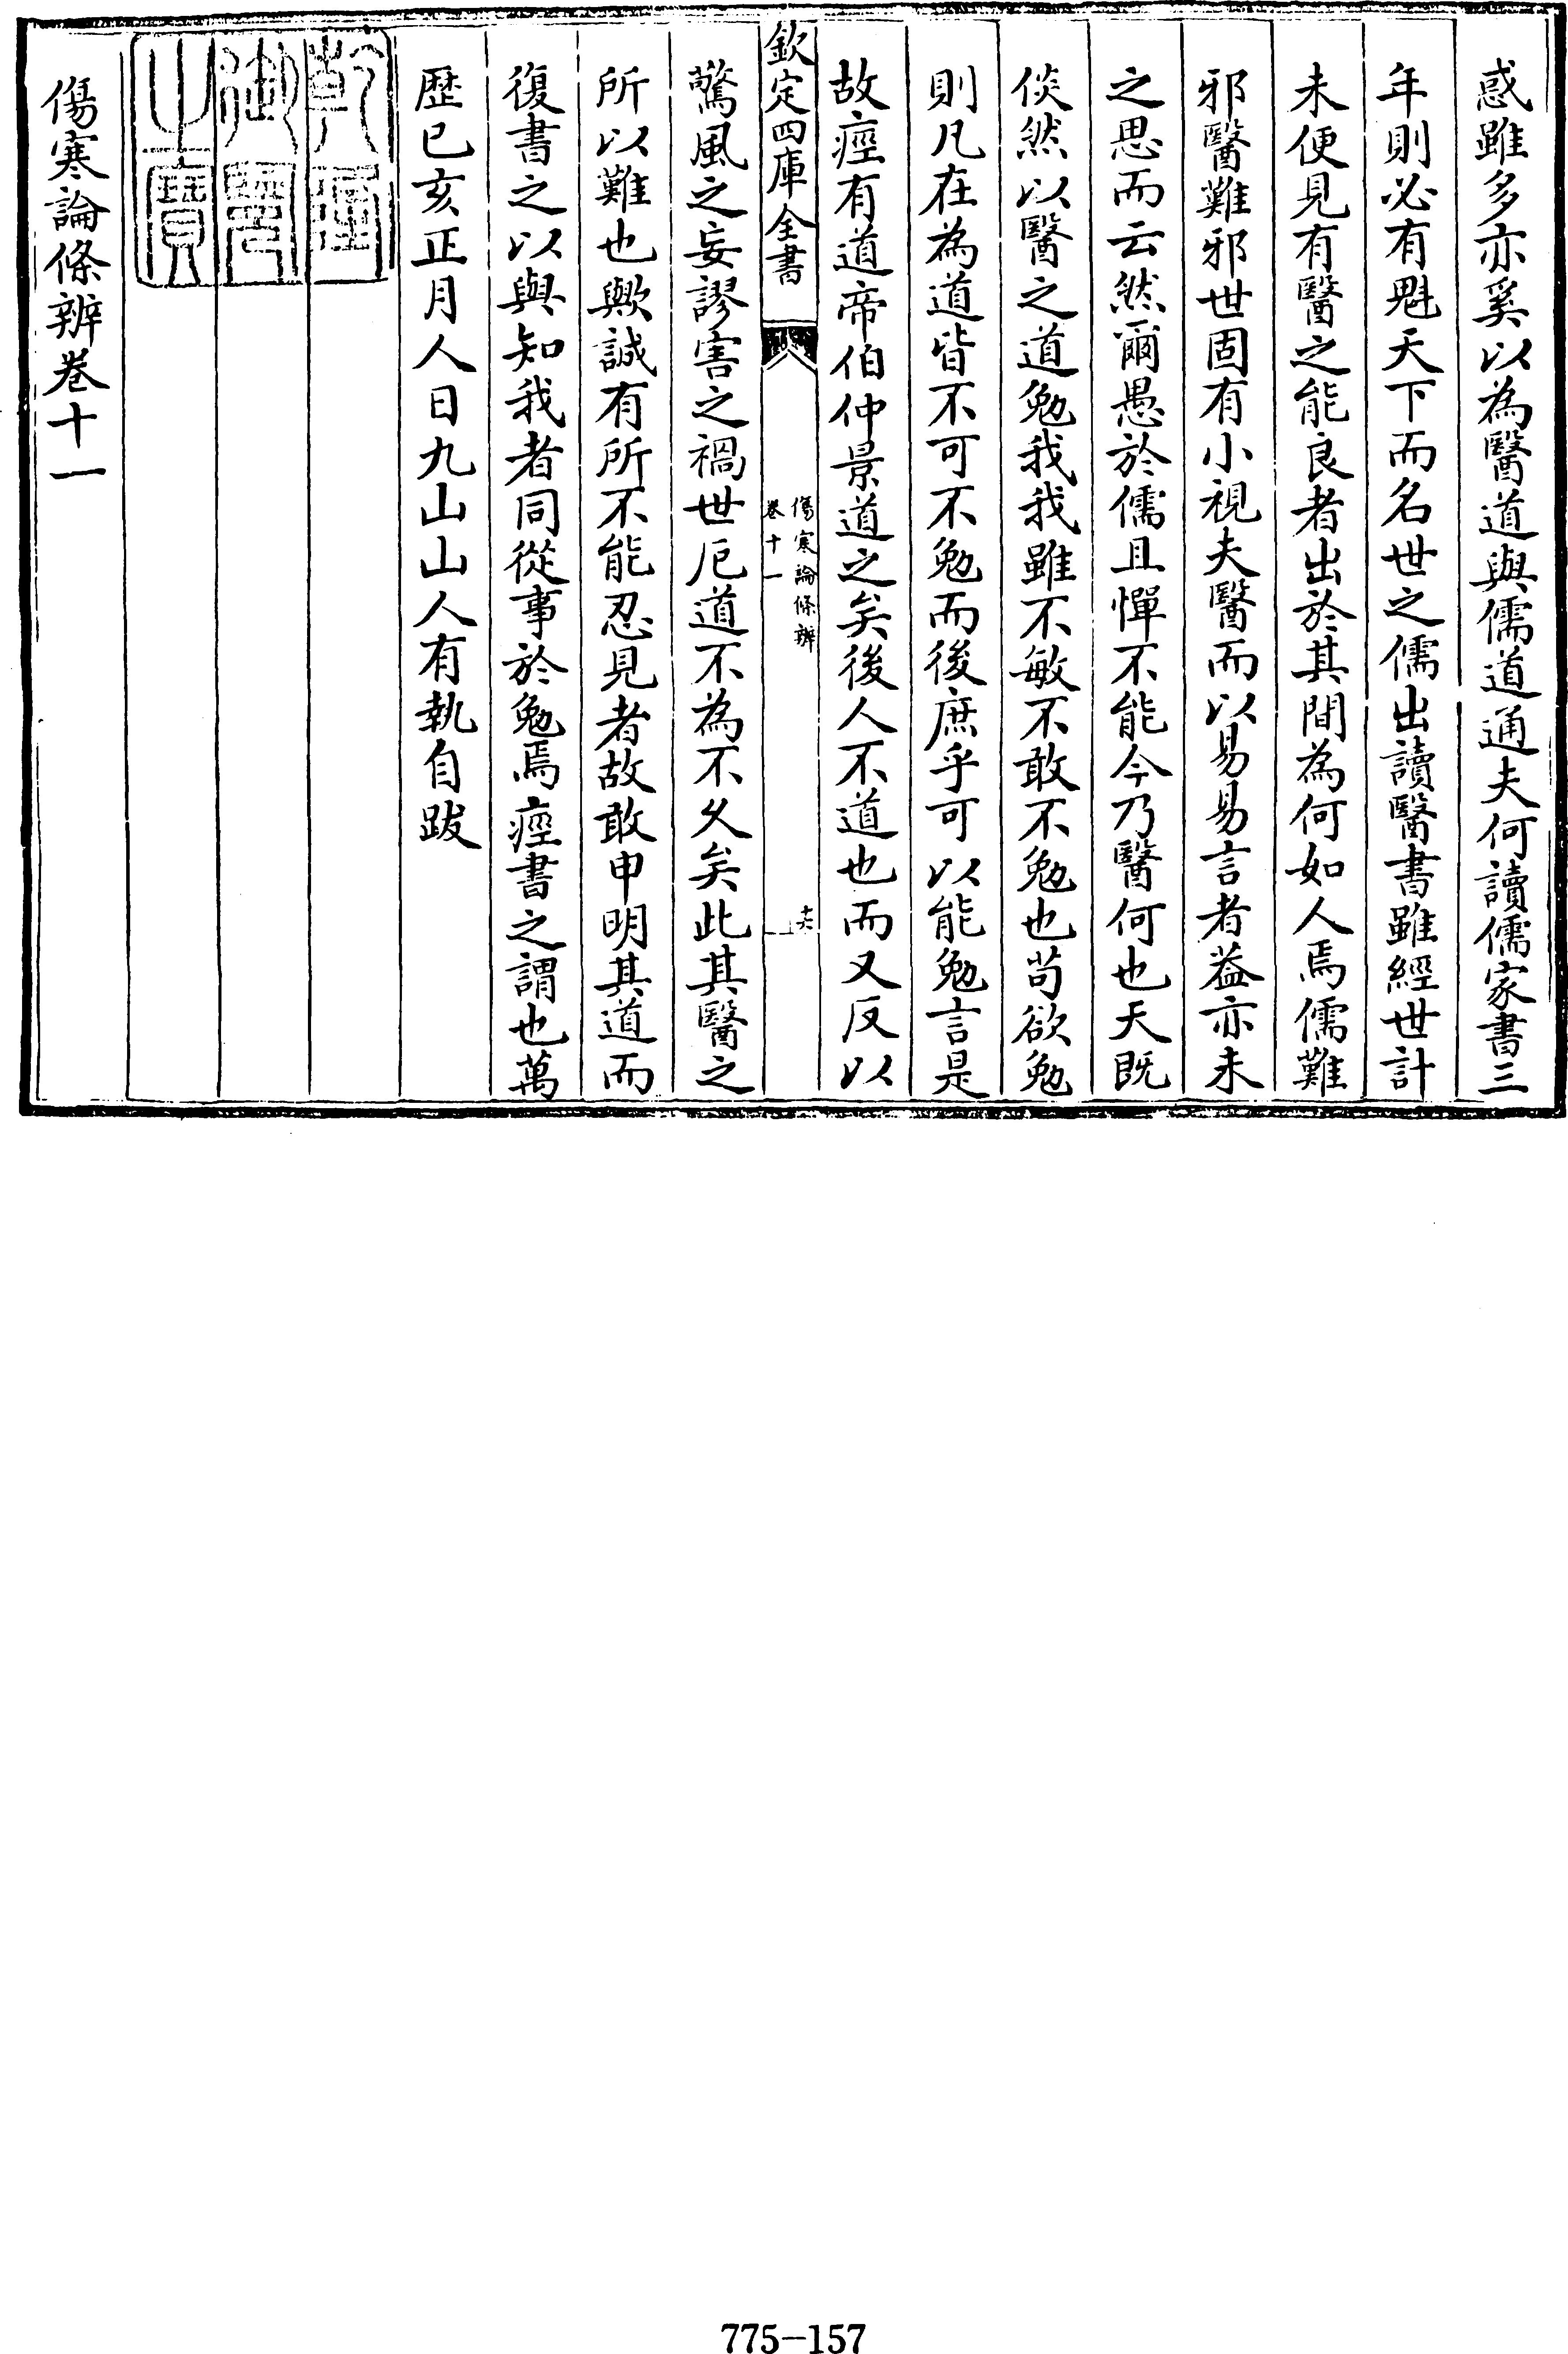 惑雖多亦奚以為醫道與儒道通夫何讀儒家書三
年則必有魁天下而名世之儒出讀醫書雖經世計
未便見有醫之能良者出於其間為何如人焉儒難
邪醫難邪世固有小視夫醫而以易易言者益亦未
之思而云然爾愚於儒且憚不能今乃醫何也天既
倓然以醫之道勉我我雖不敏不敢不勉也茍欲勉
則凡在為道皆不可不勉而後庶乎可以能勉言是
故痙有道帝伯仲景道之矣後人不道也而又反以
欽定四庫全書
傷寒論條辨
卷十一
十六
驚風之妄謬害之禍世厄道不為不久矣此其醫之
所以難也歟誠有所不能忍見者故敢申明其道而
復書之以與知我者同從事於勉焉痙書之謂也萬
歷已亥正月人日九山山人有執自跋
乾隆
御覽
之寶
傷寒論條辨卷十一
775-157